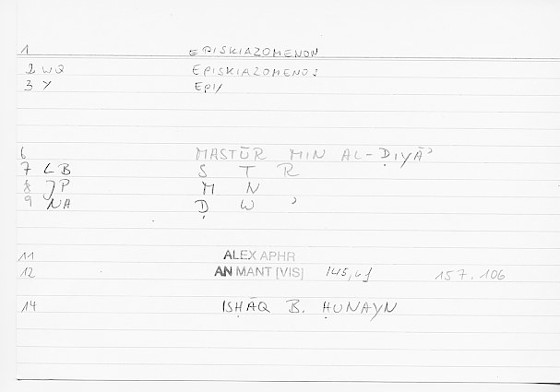 1 EPISKIAZOMENON
2 WQ EPISKIAZOMENOS
3 Y EPIY
6 MASTŪR MIN AL-ḌIYĀʾ
7 LB S T R
8 JP M N
9 NA Ḍ W ʾ
11 ALEX APHR
12 AN MANT (VIS) 145,4f 157.106
14 ISḤĀQ B. ḤUNAYN